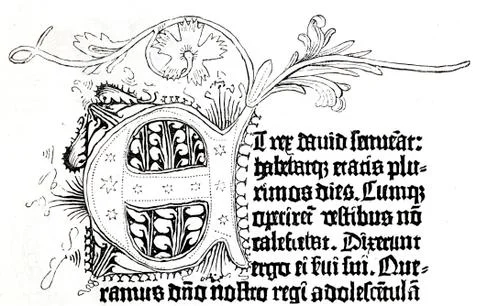 ET rex dauid senuẽat:
habebatqꝫ etatis plu-
rimos dies. Cumqꝫ
operiret̃ vestibus nõ
calefiebat. Dixerunt
ergo ei s̃ui sui. Que-
ramus dño nostro regi adolescẽtulã